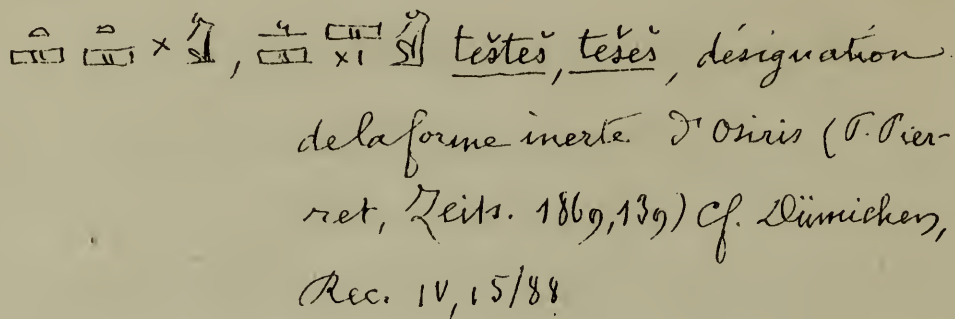 𓏏𓈙𓏏𓈙𓏴, 𓈙𓈙𓏴𓏤 tešteš, tešeš, désignation
de la forme inerte d'Osiris (P. Pier-
ret, Zeits. 1869, 139) Cf. Dümichen,
Rec. IV, 15/88